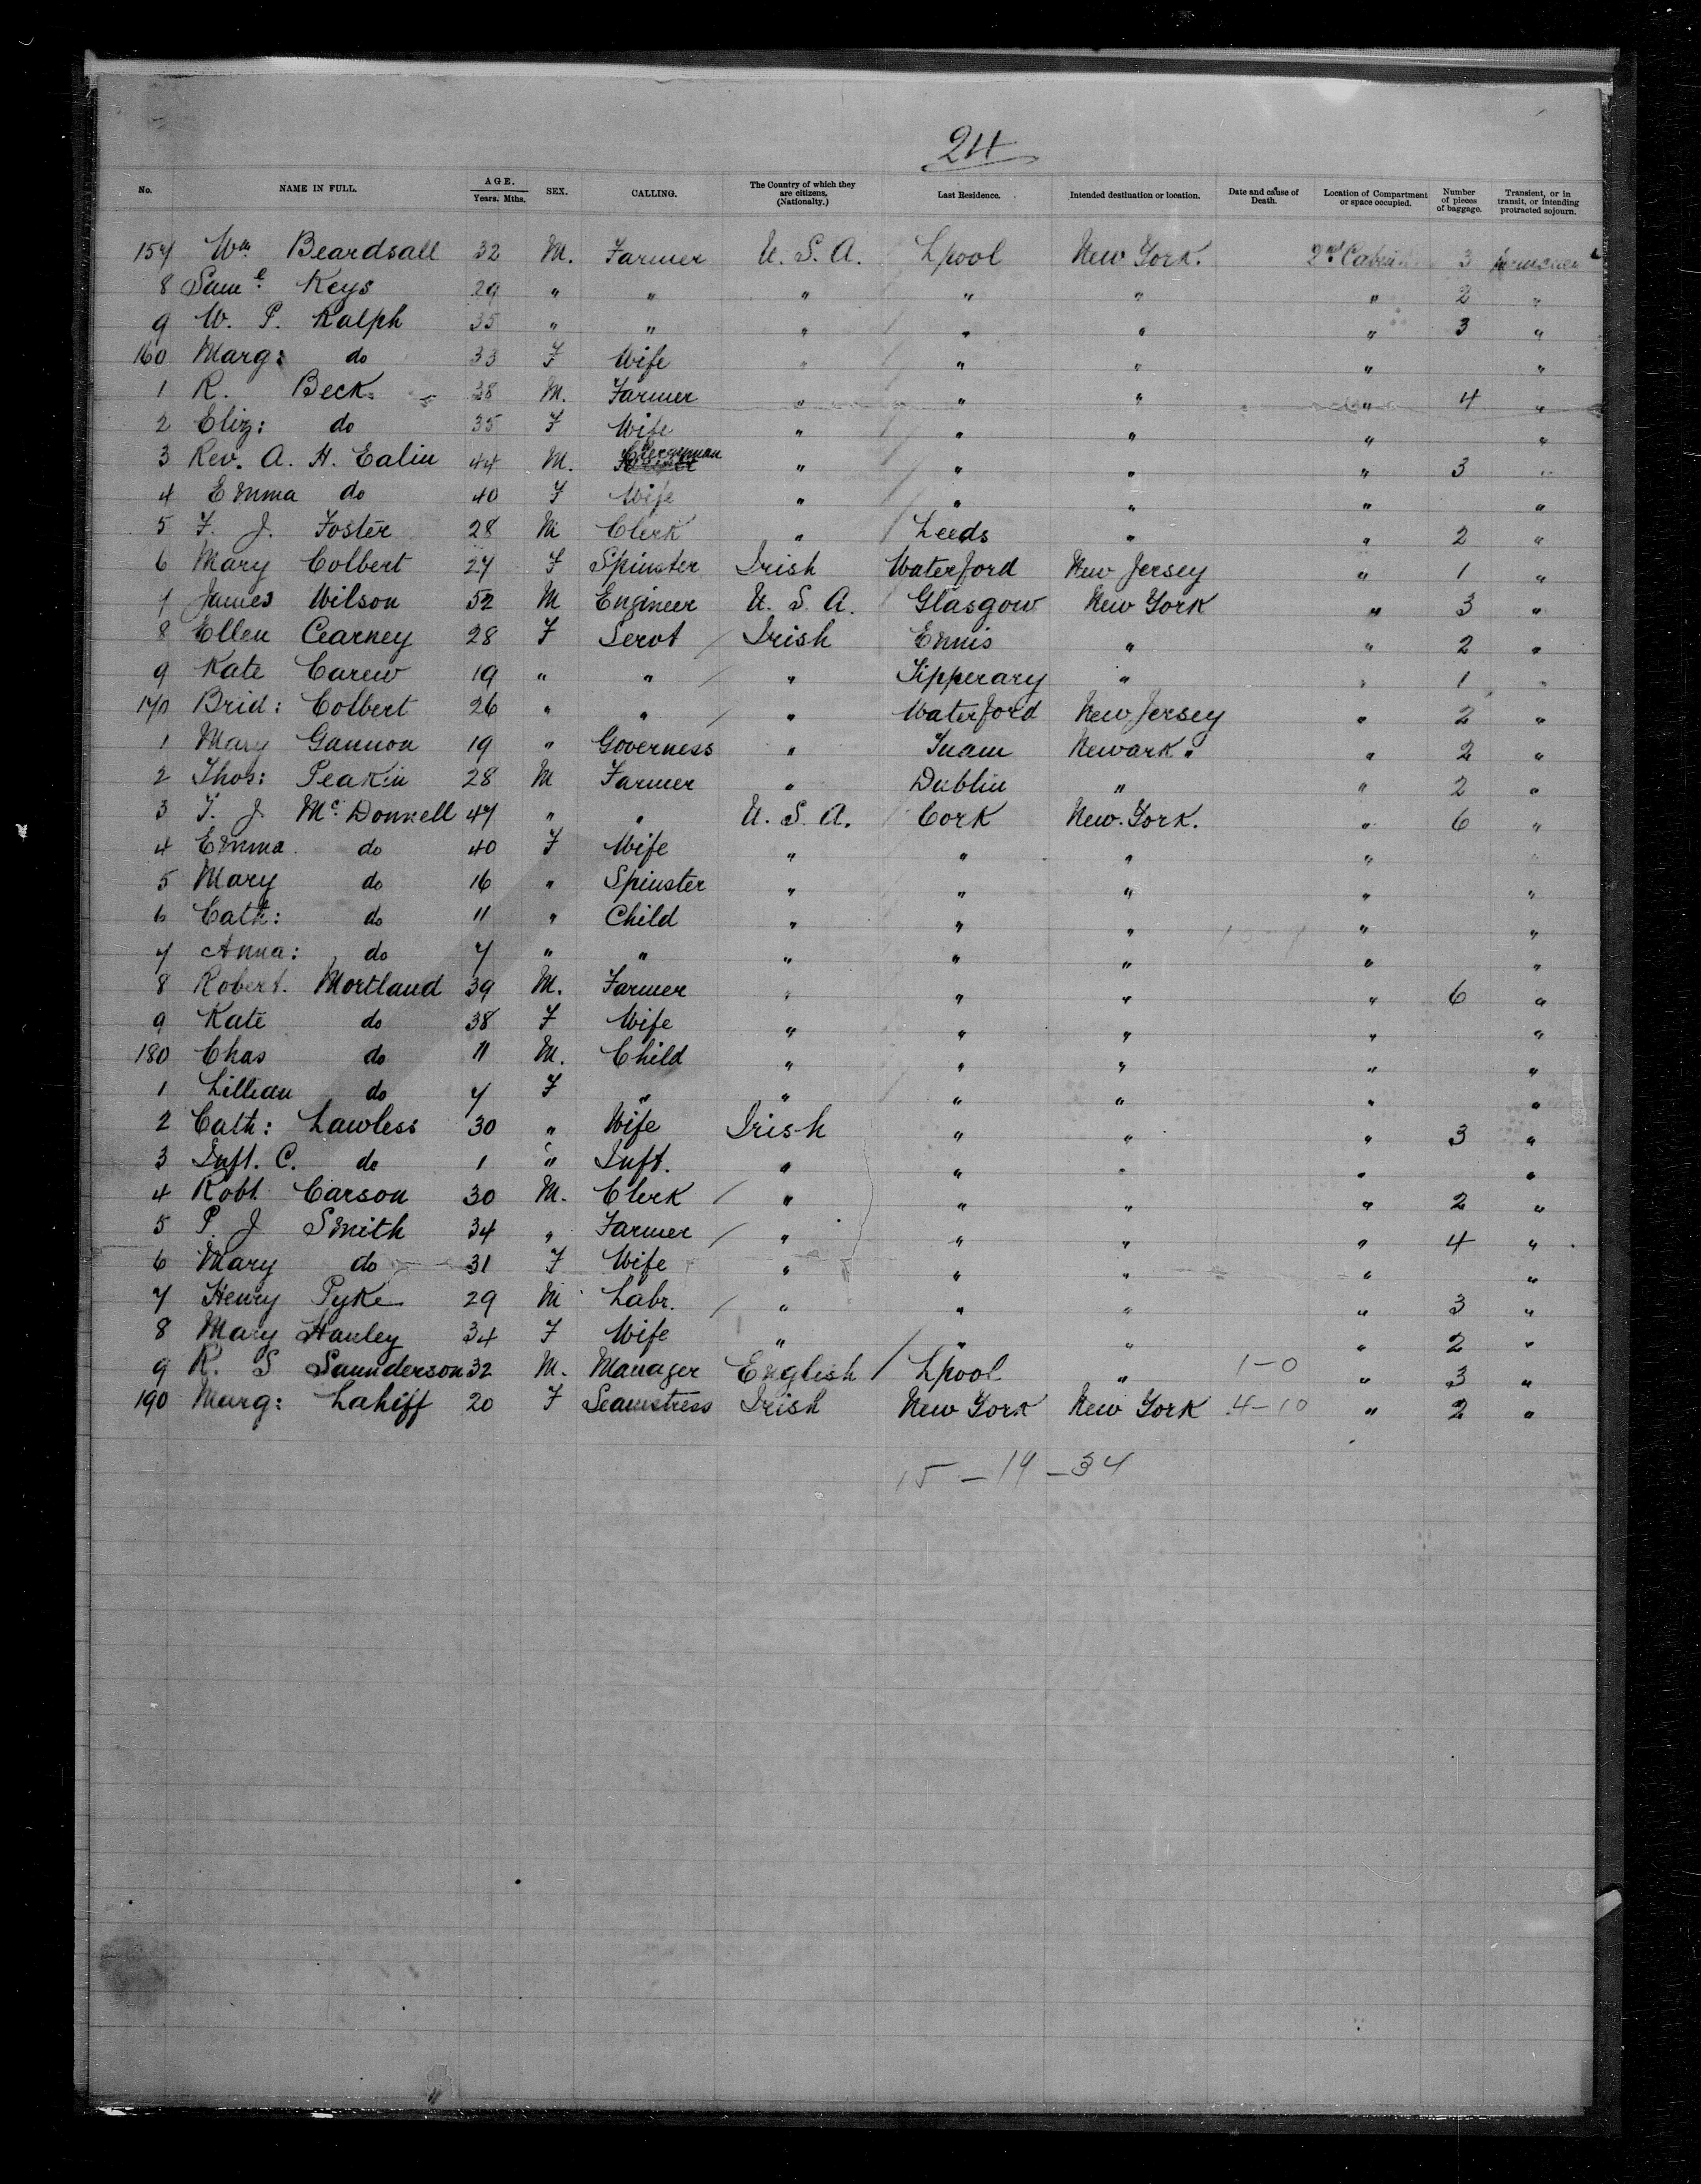 24
No. NAME IN FULL. AGE. Years. Mths. SEX. CALLING. The Country of which they are citizens, (Nationalty.) Last Residence. Intended destination or location. Date and cause of Death. Location of Compartment or space occupied. Number of pieces of baggage. Transient, or in transit, or intending protracted sojourn.
157 Wm Beardsall 32 M. Farmer U. S. A. Lpool New York. 2nd Cabin 3
8 Saml Keys 29 " " " " " " 2 "
9 W. P. Ralph 35 " " " " " " 3 "
160 Marg: do 33 F Wife " " " " "
1 R. Beck 38 M. Farmer " " " " 4 "
2 Eliz: do 35 F Wife " " " " "
3 Rev. A. H. Ealin 44 M. Clergyman " " " " 3 "
4 Emma do 40 F Wife " " " " "
5 F. J. Foster 28 M Clerk " Leeds " " 2 "
6 Mary Colbert 27 F Spinster Irish Waterford New Jersey " 1 "
7 James Wilson 52 M Engineer U. S. A. Glasgow New York " 3 "
8 Ellen Cearney 28 F Servt / Irish Ennis " " 2 "
9 Kate Carew 19 " " / " Tipperary " " 1 "
170 Brid: Colbert 26 " " / " Waterford New Jersey " 2 "
1 Mary Gannon 19 " Governess " Tuam Newark " " 2 "
2 Thos: Peakin 28 M Farmer " Dublin " " 2 "
3 T. J. McDonnell 47 " " U. S. A. Cork New York. " 6 "
4 Emma do 40 F Wife " " " " "
5 Mary do 16 " Spinster " " " " "
6 Cath: do 11 " Child " " " " "
7 Anna: do 7 " " " " " " "
8 Robert. Mortland 39 M. Farmer " " " " 6 "
9 Kate do 38 F Wife " " " " "
180 Chas do 11 M. Child " " " " "
1 Lillian do 7 F " " " " " "
2 Cath: Lawless 30 " Wife Irish " " " 3 "
3 Inft. C. do 1 " Inft. " " " " "
4 Robt Carson 30 M. Clerk / " " " " 2 "
5 P. J Smith 34 " Farmer / " " " " 4 "
6 Mary do 31 F Wife " " " " "
7 Henry Pyke 29 M Labr. / " " " " 3 "
8 Mary Hanley 34 F Wife " " " " 2 "
9 R. S Saunderson 32 M. Manager English Lpool " 1-0 " 3 "
190 Marg: Lahiff 20 F Seamstress Irish New York New York 4-10 " 2 "
15 - 19 - 34